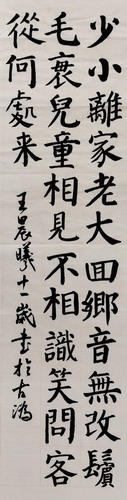 少小離家老大回鄉音無改鬢
毛衰兒童相見不相識笑問客
從何處来
王晨曦十一歲書於古鴻